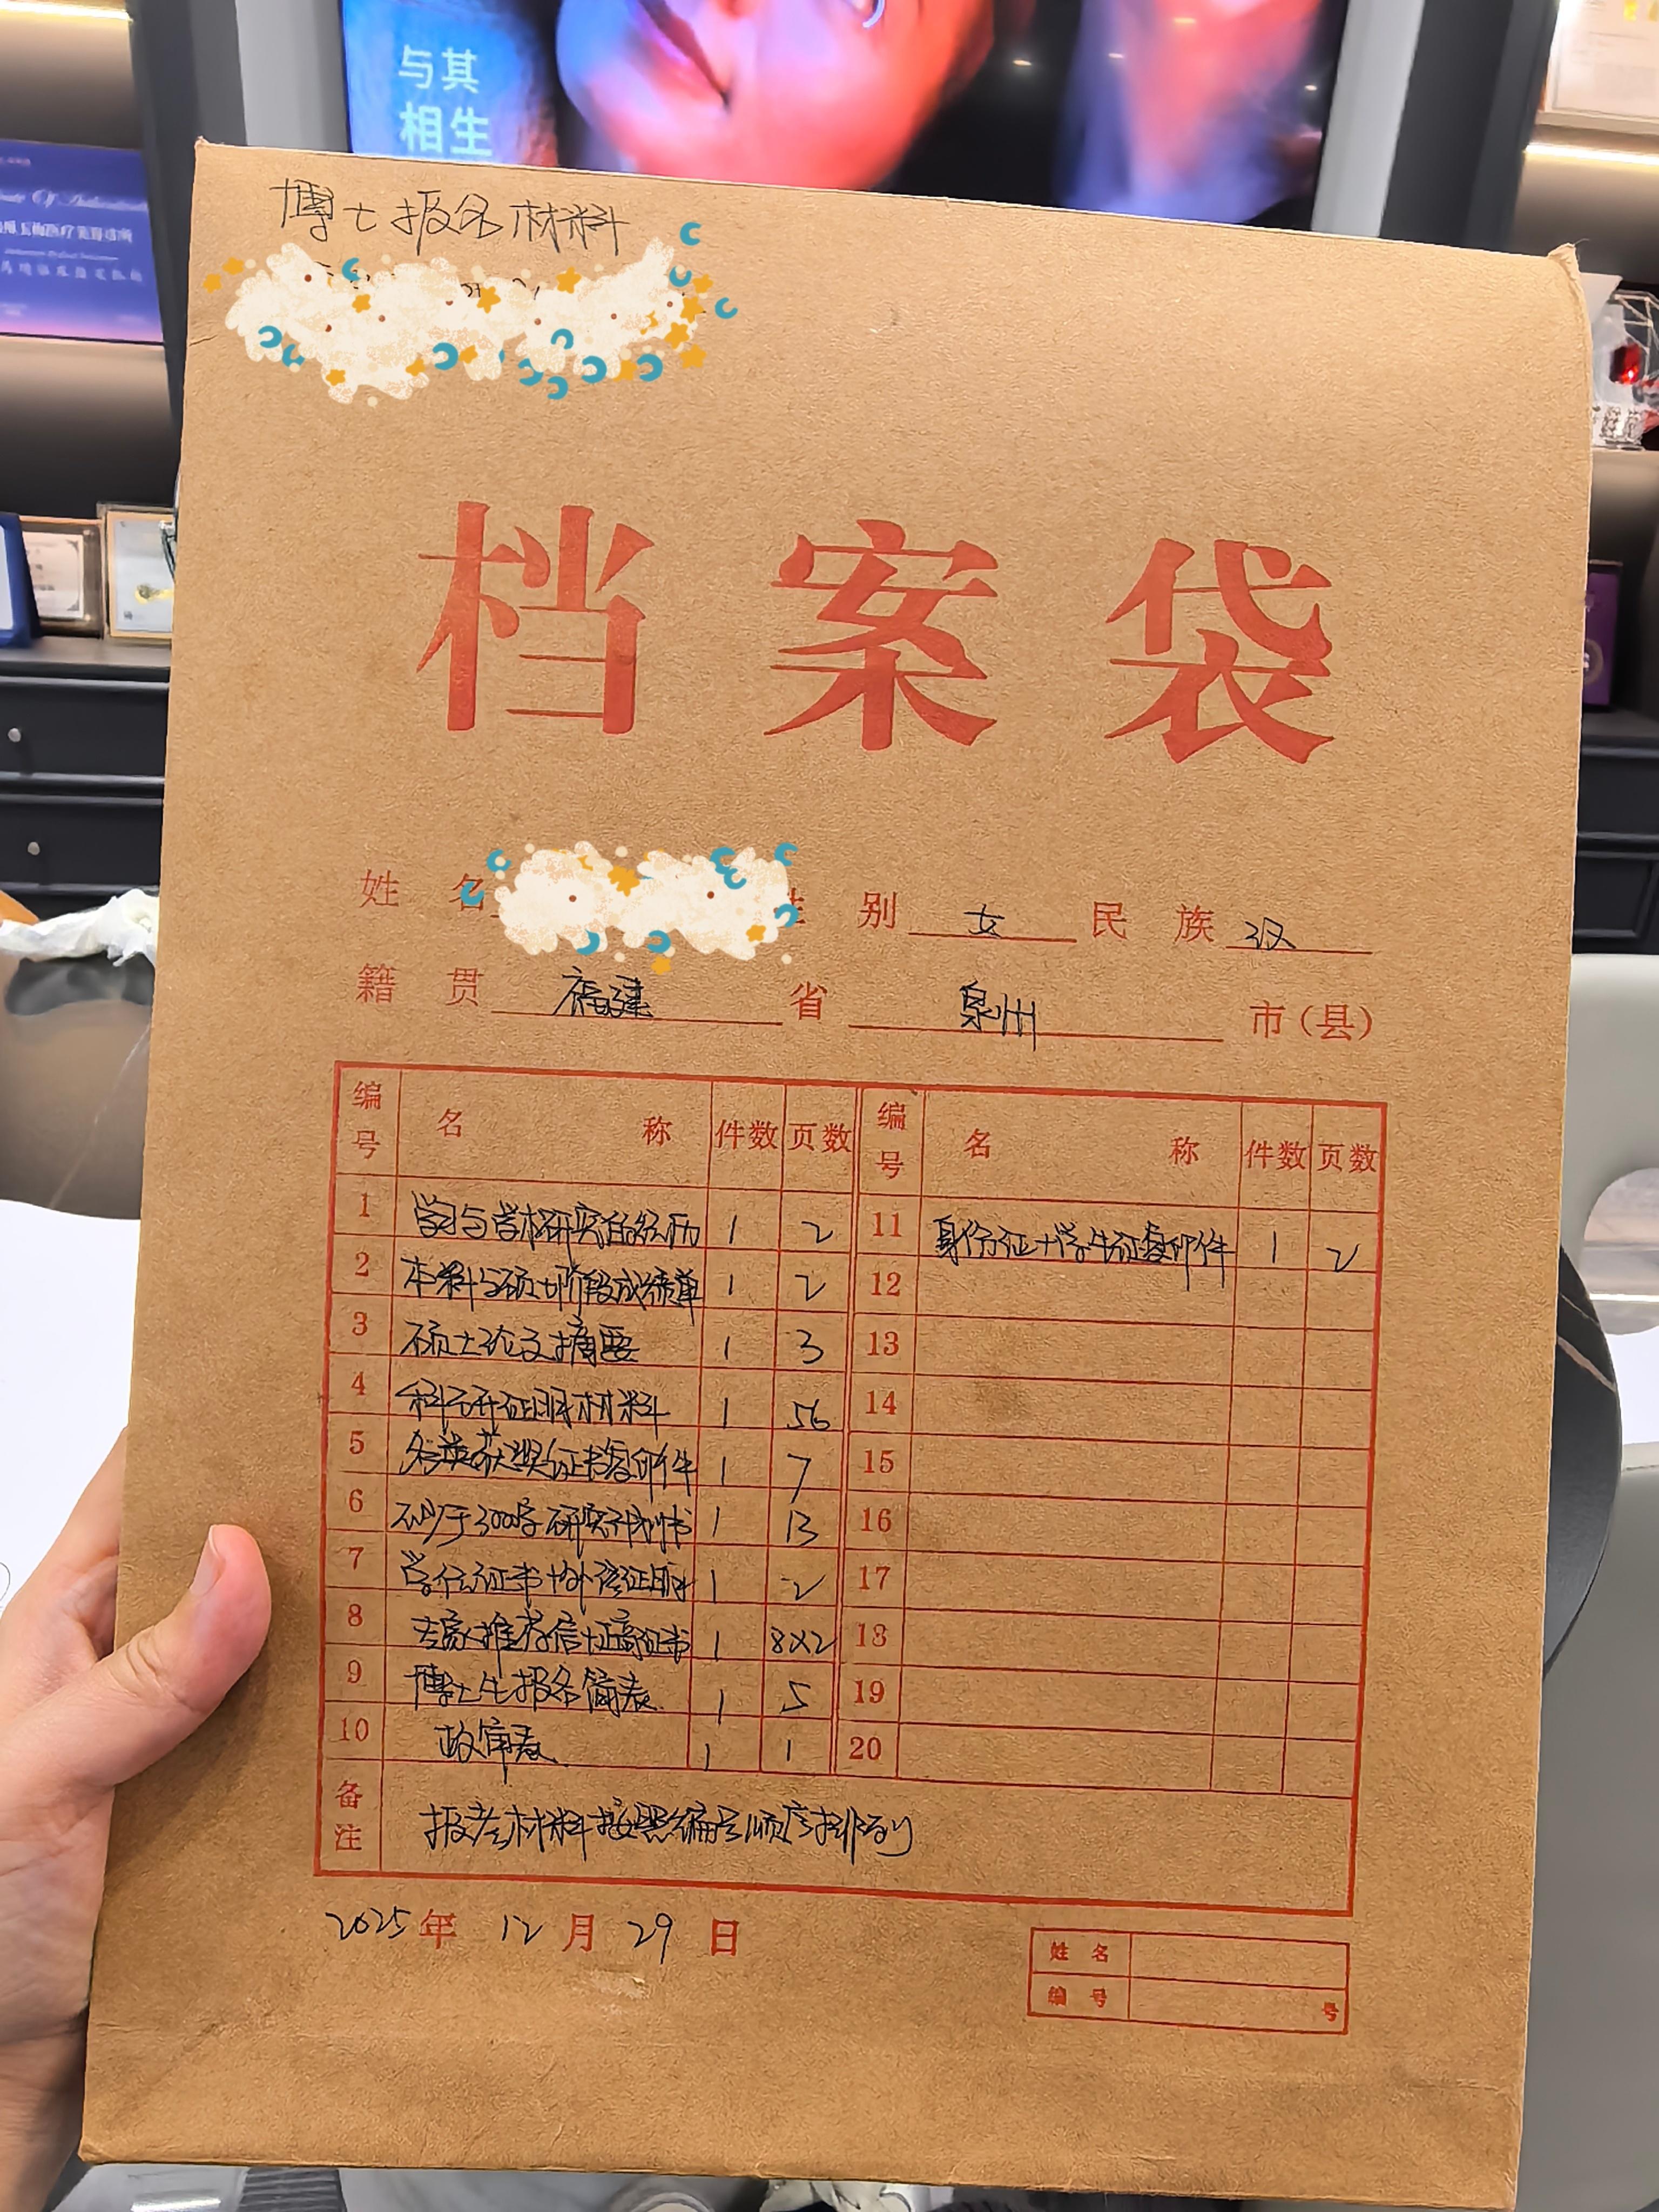 与其
相生
博士报名材料
档案袋
姓 名 别 女 民 族 汉
籍 贯 福建 省 泉州 市(县)
编号 名 称 件数 页数 编号 名 称 件数 页数
1 学习与学术研究自传经历 1 2 11 身份证+学生证复印件 1 2
2 本科与硕士阶段成绩单 1 2 12
3 硕士论文摘要 1 3 13
4 科研证明材料 1 56 14
5 各类获奖证书复印件 1 7 15
6 不少于3000字研究计划书 1 13 16
7 学位证书+外语证明 1 2 17
8 专家推荐信+正高证书 1 8X2 18
9 博士生报名简表 1 5 19
10 政审表 1 1 20
备注 报考材料按照编号顺序排列
2025 年 12 月 29 日
姓 名
编 号 号